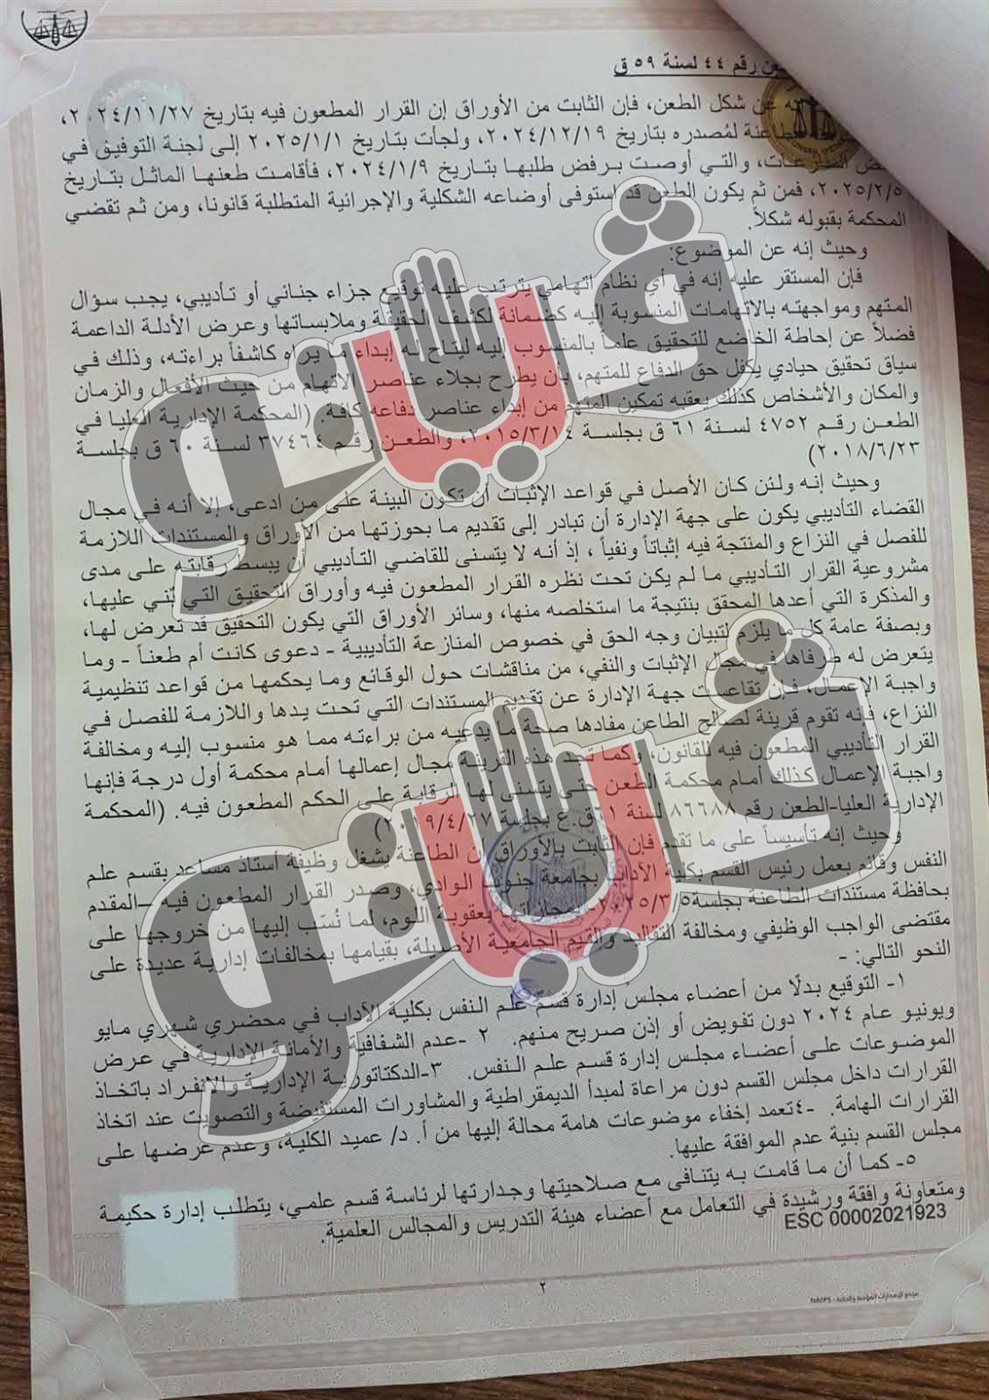 رقم ٤٤ لسنة ٥٩ ق
عن شكل الطعن، فإن الثابت من الأوراق إن القرار المطعون فيه بتاريخ ٢٠٢٤/١١/٢٧،
لمُصدره بتاريخ ٢٠٢٤/١٢/١٩، ولجأت بتاريخ ٢٠٢٥/١/١ إلى لجنة التوفيق في
والتي أوصت برفض طلبها بتاريخ ٢٠٢٤/١/٩، فأقامت طعنها الماثل بتاريخ
٢٠٢٥/٢/٥، فمن ثم يكون الطعن قد استوفى أوضاعه الشكلية والإجرائية المتطلبة قانونا، ومن ثم تقضي
المحكمة بقبوله شكلاً.
وحيث إنه عن الموضوع:
فإن المستقر عليه إنه في أي نظام اتهامي يترتب عليه توقيع جزاء جنائي أو تأديبي، يجب سؤال
المتهم ومواجهته بالاتهامات المنسوبة إليه كضمانة لكشف الحقيقة وملابساتها وعرض الأدلة الداعمة
فضلاً عن إحاطة الخاضع للتحقيق علماً بالمنسوب إليه ليتاح له إبداء ما يراه كاشفاً براءته، وذلك في
سياق تحقيق حيادي يكفل حق الدفاع للمتهم، بأن يطرح بجلاء عناصر الاتهام من حيث الأفعال والزمان
والمكان والأشخاص كذلك يعقبه تمكين المتهم من إبداء عناصر دفاعه كافة. (المحكمة الإدارية العليا في
الطعن رقم ٤٧٥٢ لسنة ٦١ ق بجلسة ٢٠١٥/٣/١٤، والطعن رقم ٣٧٤٦٤ لسنة ٦٠ ق بجلسة
٢٠١٨/٦/٢٣)
وحيث إنه ولئن كان الأصل في قواعد الإثبات أن تكون البينة على من ادعى، إلا أنه في مجال
القضاء التأديبي يكون على جهة الإدارة أن تبادر إلى تقديم ما بحوزتها من الأوراق والمستندات اللازمة
للفصل في النزاع والمنتجة فيه إثباتاً ونفياً، إذ أنه لا يتسنى للقاضي التأديبي أن يبسط رقابته على مدى
مشروعية القرار التأديبي ما لم يكن تحت نظره القرار المطعون فيه وأوراق التحقيق التي بُني عليها،
والمذكرة التي أعدها المحقق بنتيجة ما استخلصه منها، وسائر الأوراق التي يكون التحقيق قد تعرض لها،
وبصفة عامة كل ما يلزم لتبيان وجه الحق في خصوص المنازعة التأديبية - دعوى كانت أم طعناً - وما
يتعرض له طرفاها في مجال الإثبات والنفي، من مناقشات حول الوقائع وما يحكمها من قواعد تنظيمية
واجبة الإعمال، فإن تقاعست جهة الإدارة عن تقديم المستندات التي تحت يدها واللازمة للفصل في
النزاع، فإنه تقوم قرينة لصالح الطاعن مفادها صحة ما يدعيه من براءته مما هو منسوب إليه ومخالفة
القرار التأديبي المطعون فيه للقانون، وكما تجد هذه القرينة مجال إعمالها أمام محكمة أول درجة فإنها
واجبة الإعمال كذلك أمام محكمة الطعن حتى يتسنى لها الرقابة على الحكم المطعون فيه. (المحكمة
الإدارية العليا-الطعن رقم ٨٦٦٨٨ لسنة ٦١ ق.ع بجلسة ٢٠١٩/٤/٢٧)
وحيث إنه تأسيساً على ما تقدم فإن الثابت بالأوراق أن الطاعنة يشغل وظيفة أستاذ مساعد بقسم علم
النفس وقائم بعمل رئيس القسم بكلية الآداب بجامعة جنوب الوادي، وصدر القرار المطعون فيه –المقدم
بحافظة مستندات الطاعنة بجلسة ٢٠٢٥/٣/٥- بمجازاتها بعقوبة اللوم، لما نُسب إليها من خروجها على
مقتضى الواجب الوظيفي ومخالفة التقاليد والقيم الجامعية الأصيلة، بقيامها بمخالفات إدارية عديدة على
النحو التالي: -
١- التوقيع بدلًا من أعضاء مجلس إدارة قسم علم النفس بكلية الآداب في محضري شهري مايو
ويونيو عام ٢٠٢٤ دون تفويض أو إذن صريح منهم. ٢ -عدم الشفافية والأمانة الإدارية في عرض
الموضوعات على أعضاء مجلس إدارة قسم علم النفس. ٣-الدكتاتورية الإدارية والانفراد باتخاذ
القرارات داخل مجلس القسم دون مراعاة لمبدأ الديمقراطية والمشاورات المستفيضة والتصويت عند اتخاذ
القرارات الهامة. -٤تعمد إخفاء موضوعات هامة محالة إليها من أ. د/ عميد الكلية، وعدم عرضها على
مجلس القسم بنية عدم الموافقة عليها.
٥- كما أن ما قامت به يتنافى مع صلاحيتها وجدارتها لرئاسة قسم علمي، يتطلب إدارة حكيمة
ومتعاونة وافقة ورشيدة في التعامل مع أعضاء هيئة التدريس والمجالس العلمية.
ESC 00002021923
٢
فيتو
فيتو